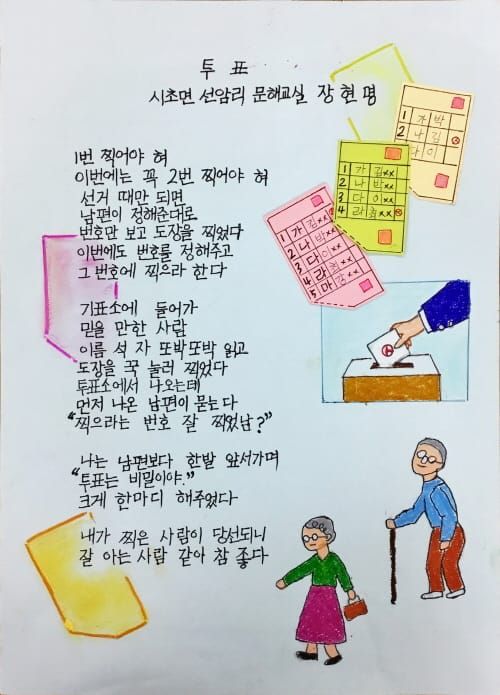 투 표
시초면 선암리 문해교실 장현명
1번 찍어야 혀
이번에는 꼭 2번 찍어야 혀
선거 때만 되면
남편이 정해준대로
번호만 보고 도장을 찍었다
이번에도 번호를 정해주고
그 번호에 찍으라 한다
기표소에 들어가
믿을 만한 사람
이름 석 자 또박또박 읽고
도장을 꾹 눌러 찍었다
투표소에서 나오는데
먼저 나온 남편이 묻는다
“찍으라는 번호 잘 찍었남?”
나는 남편보다 한발 앞서가며
“투표는 비밀이야.”
크게 한마디 해주었다
내가 찍은 사람이 당선되니
잘 아는 사람 같아 참 좋다
1 가 박
2 나 김
다 이
1 가 김xx
2 나 박xx
3 다 이xx
4 라 최xx
1 가 김xx
2 나 박xx
3 다 이xx
4 라 xx
5 마 xx